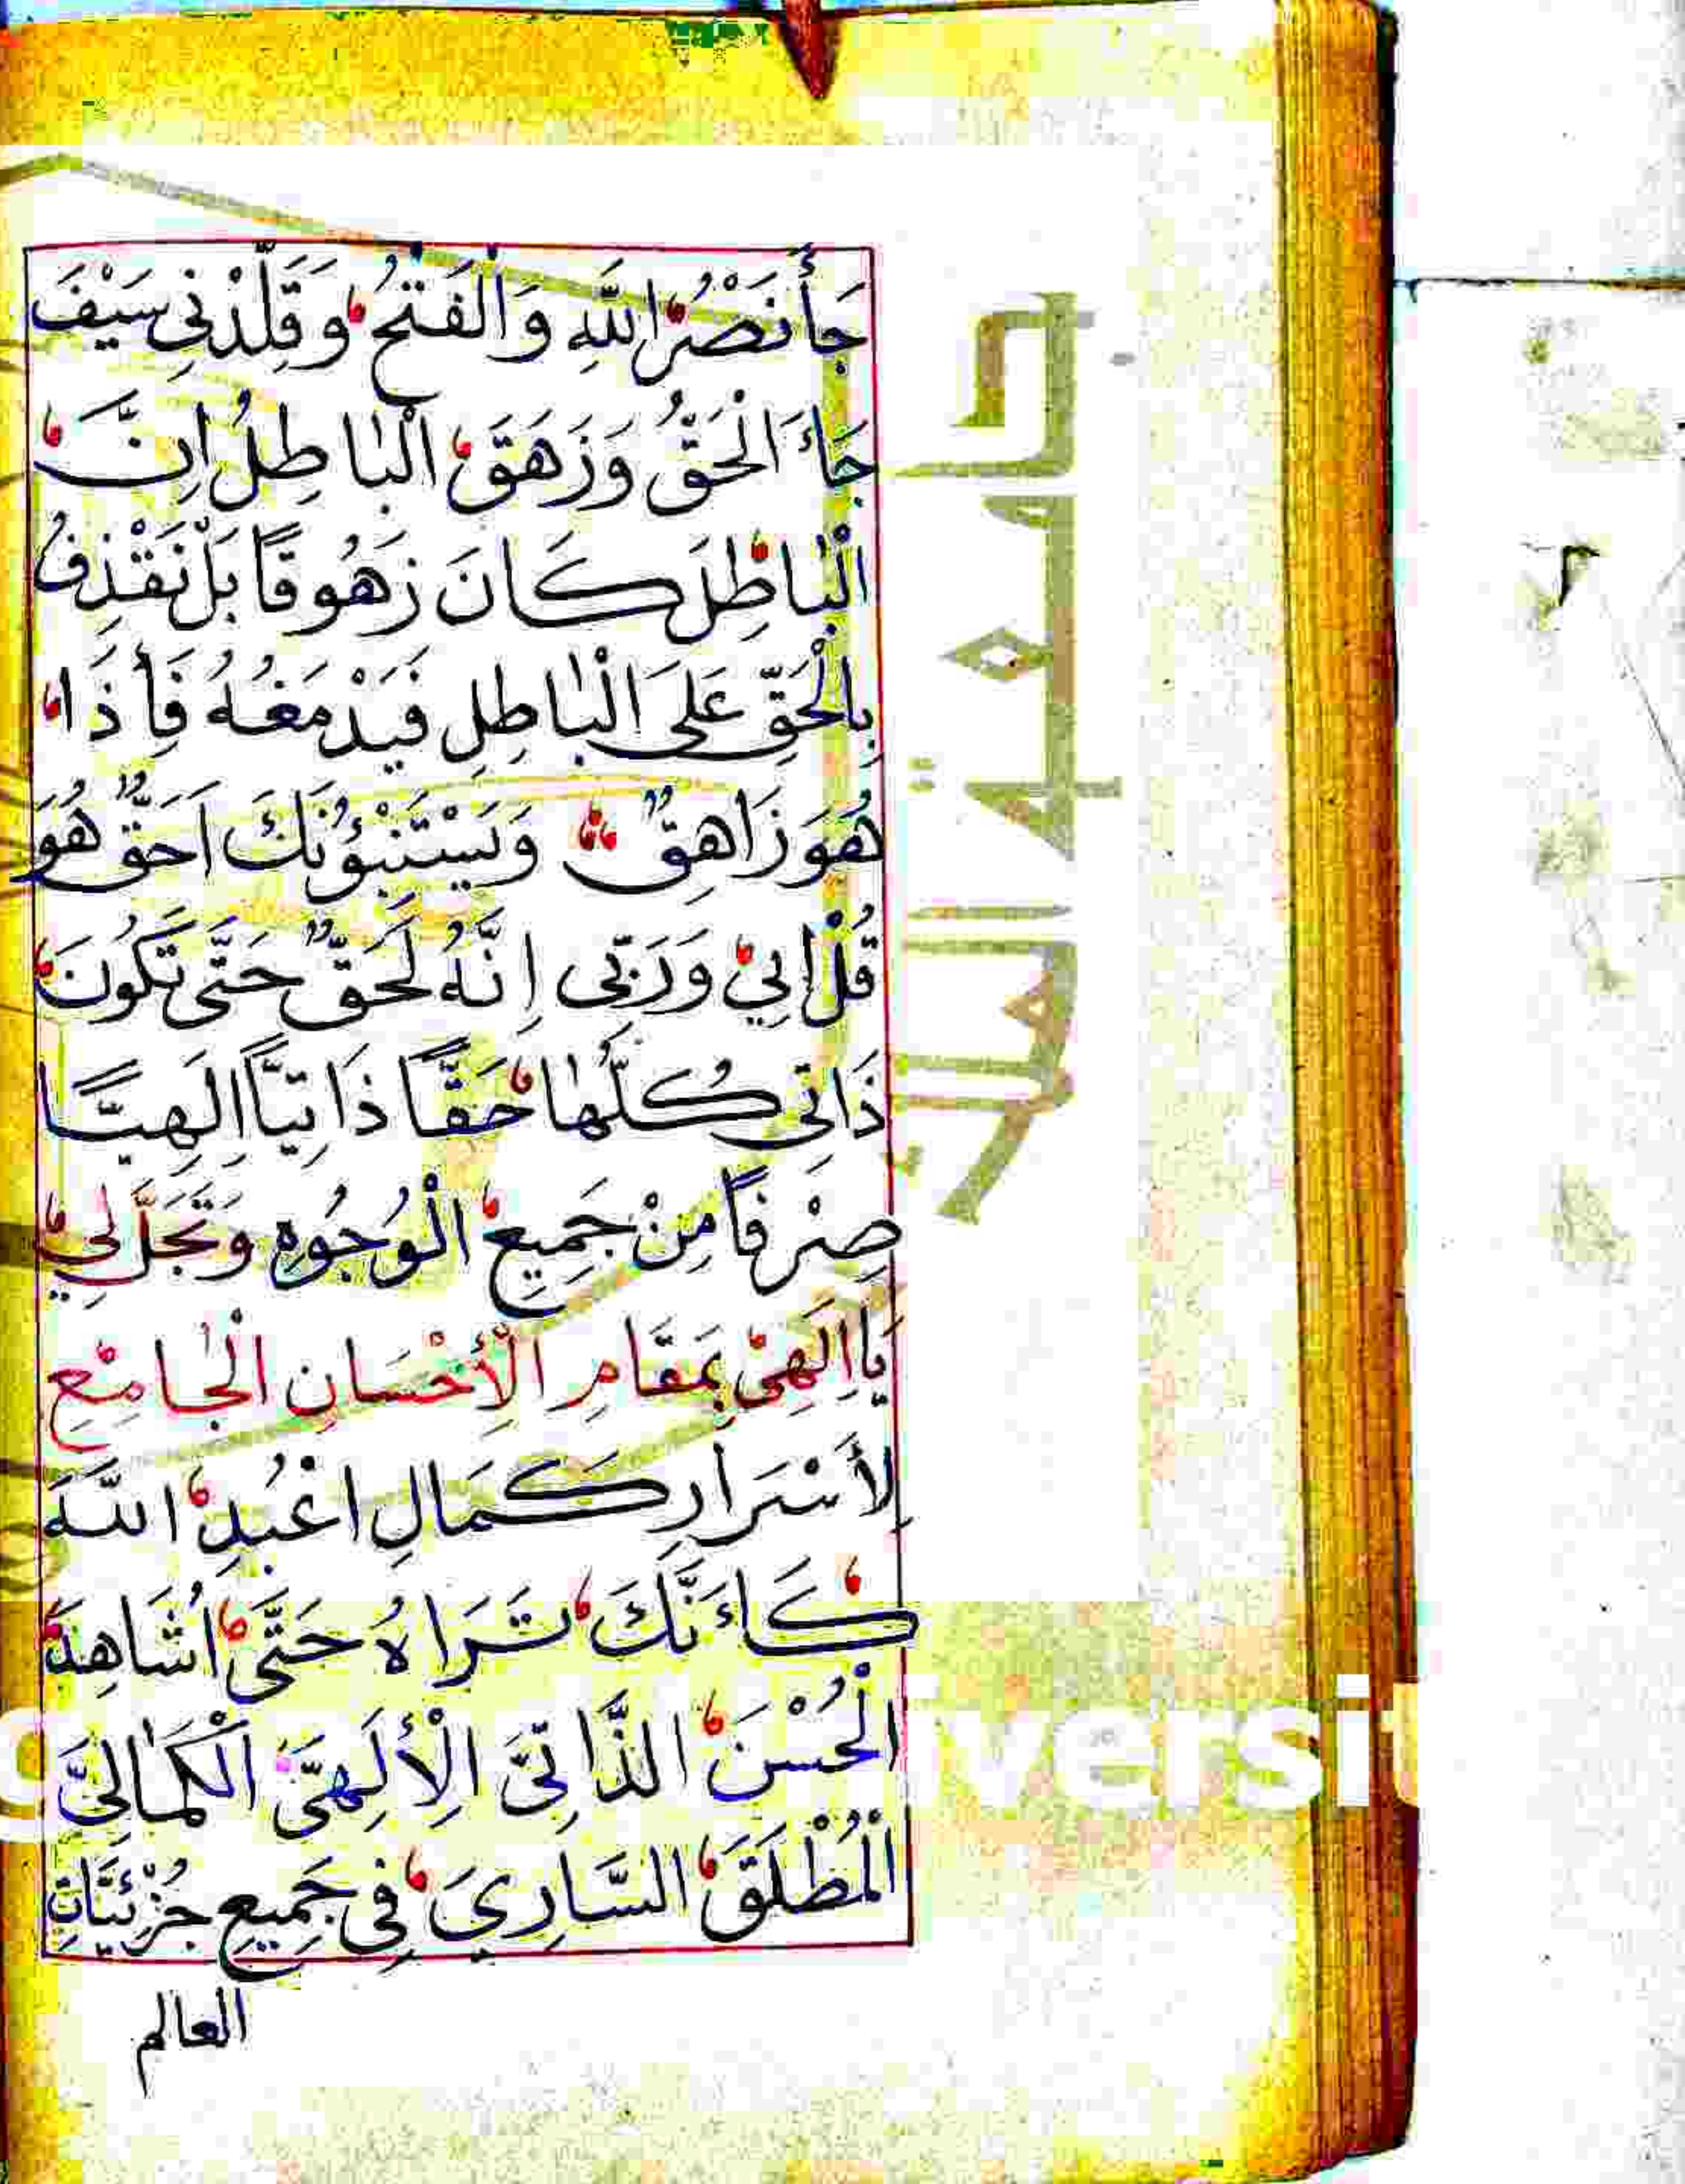 جَأَ نَصْرُ اللّٰهِ وَالْفَتْحُ وَقَلِّدْنِى سَيْفَ
جَاءَ الْحَقُّ وَزَهَقَ الْبَاطِلُ اِنَّ
الْبَاطِلَ كَانَ زَهُوقًا بَلْ نَقْذِفُ
بِالْحَقِّ عَلَى الْبَاطِلِ فَيَدْمَغُهُ فَأِذَا
هُوَ زَاهِقٌ وَيَسْتَنْبِؤُنَكَ اَحَقٌّ هُوَ
قُلْ اِيْ وَرَبِّى اِنَّهُ لَحَقٌّ حَتَّى تَكُونَ
ذَاتِى كُلُّهَا حَقًّا ذَاتِيًّا اِلَهِيًّا
صِرْفًا مِنْ جَمِيعِ الْوُجُوهِ وَتَجَلَّ لِي
يَا اِلَهِىْ بِمَقَامِ الْأِحْسَانِ الْجَامِعِ
لِأَسْرَارِ كَمَالِ اعْبُدِ اللّٰهَ
كَاَءَنَّكَ تَرَاهُ حَتَّى اُشَاهِدَ
الْحُسْنَ الذَّاتِىَّ الْأِلَهِىَّ الْكَمَالِىَّ
الْمُطْلَقَ السَّارِيَ فِى جَمِيعِ جُزْئِيَّاتِ
العالم
جامعة الملك
iversit